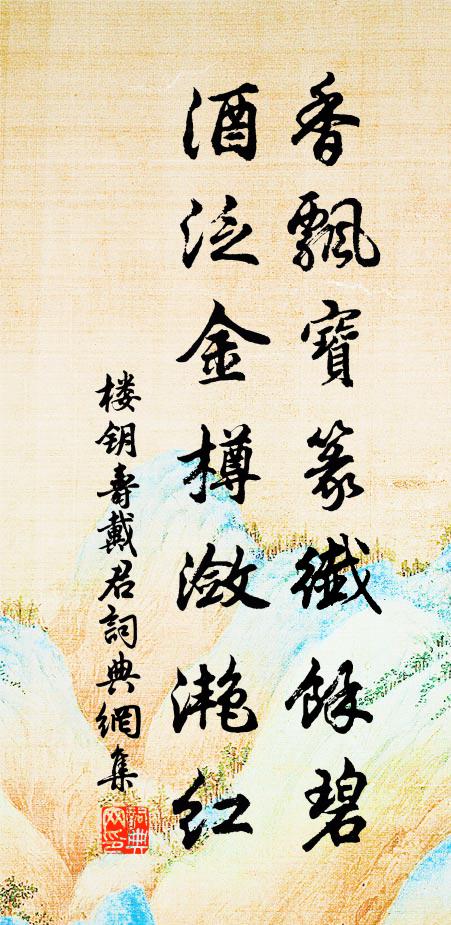 香飄寶篆纖餘碧
酒泛金樽瀲滟红
楼钥壽戴君詞典網集
詞典
网印